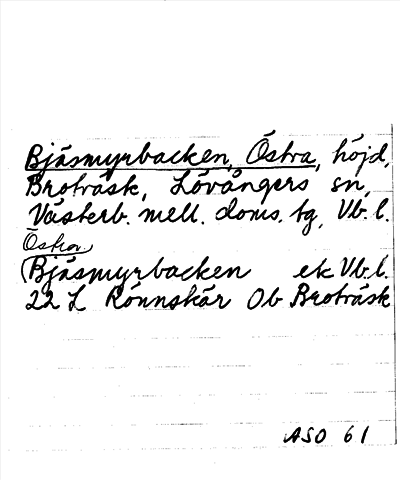 Bjäsmyrbacken, Östra, höjd,
Broträsk, Lövångers sn,
Västerb. mell. doms. tg, Vb. l.
Östra
(Bjäsmyrbacken ek Vb. l.
22 L Rönnskär Ob Broträsk
ASO 61